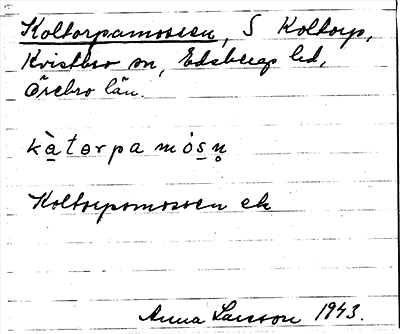 Koltorpamossen, S Koltorp,
Kvistbro sn, Edsbergs hd,
Örebro län.
kà̱tɵrpa mòs̱n̥
Koltorpamossen ek
Anna Larsson 1943.